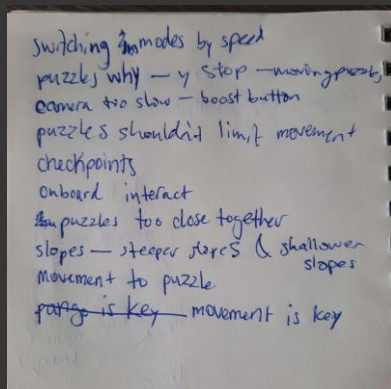 switching modes by speed
puzzles why – y stop – moving puzzles
camera too slow – boost button
puzzles shouldn't limit movement
checkpoints
onboard interact
puzzles too close together
slopes – steeper slopes & shallower
slopes
movement to puzzle
is key movement is key